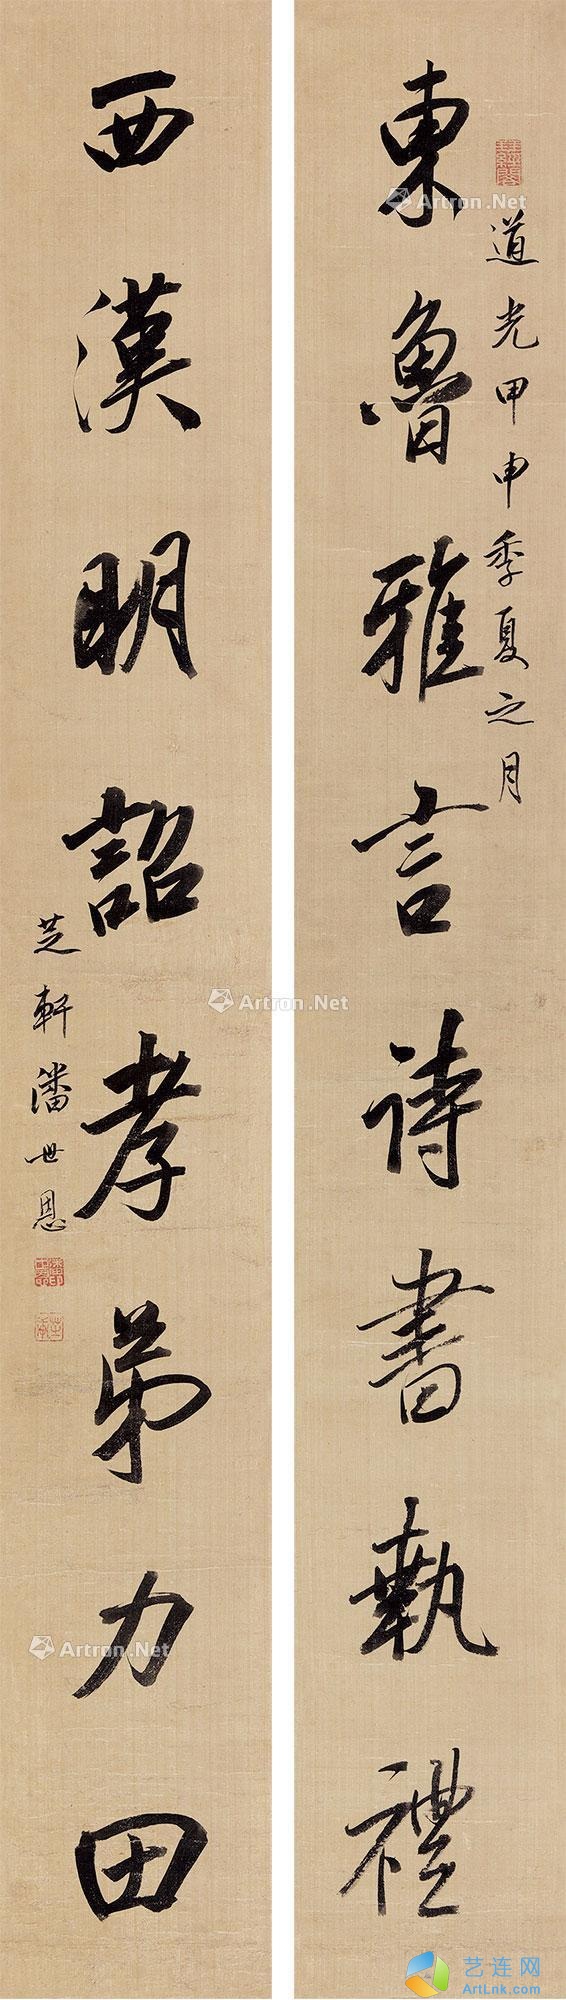 東魯雅言詩書執禮
道光甲申季夏之月
西漢明詔孝弟力田
芝軒潘世恩
Artron.Net
Artron.Net
Artron.Net
艺连网
ArtLnk.com